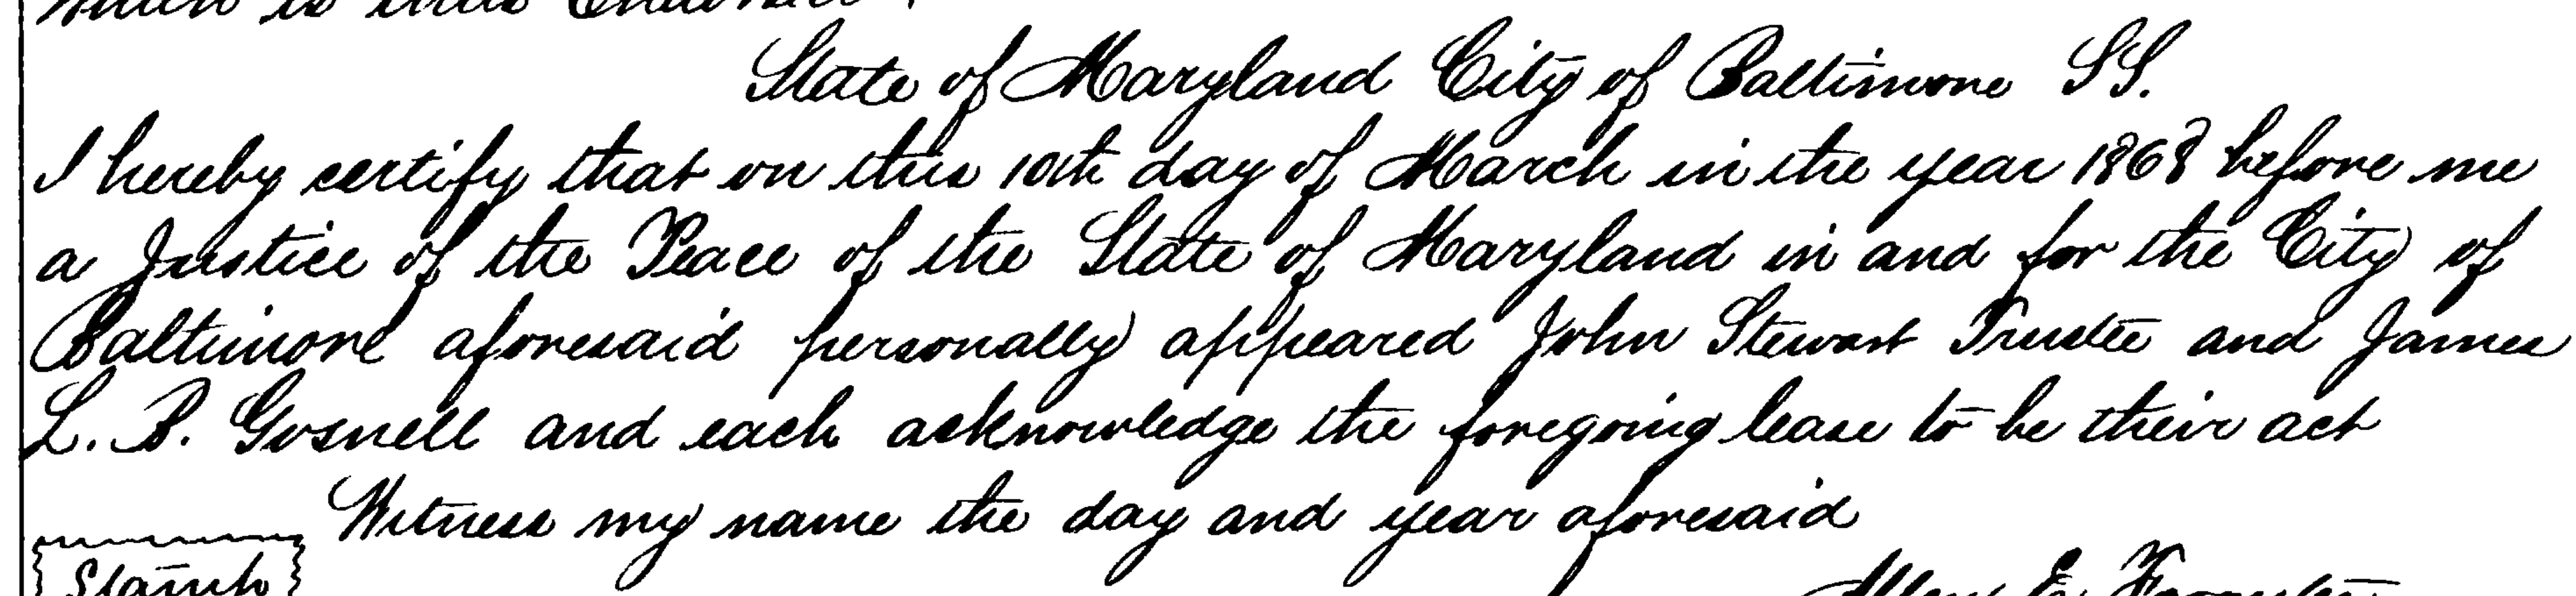 which is thus Endorsed
State of Maryland City of Baltimore SS.
I hereby certify that on this 10th day of March in the year 1868 before me
a Justice of the Peace of the State of Maryland in and for the City of
Baltimore aforesaid personally appeared John Stewart Trustee and James
L. B. Gosnell and each acknowledge the foregoing lease to be their act
Witness my name the day and year aforesaid
Stamp
Allen E. Forrester